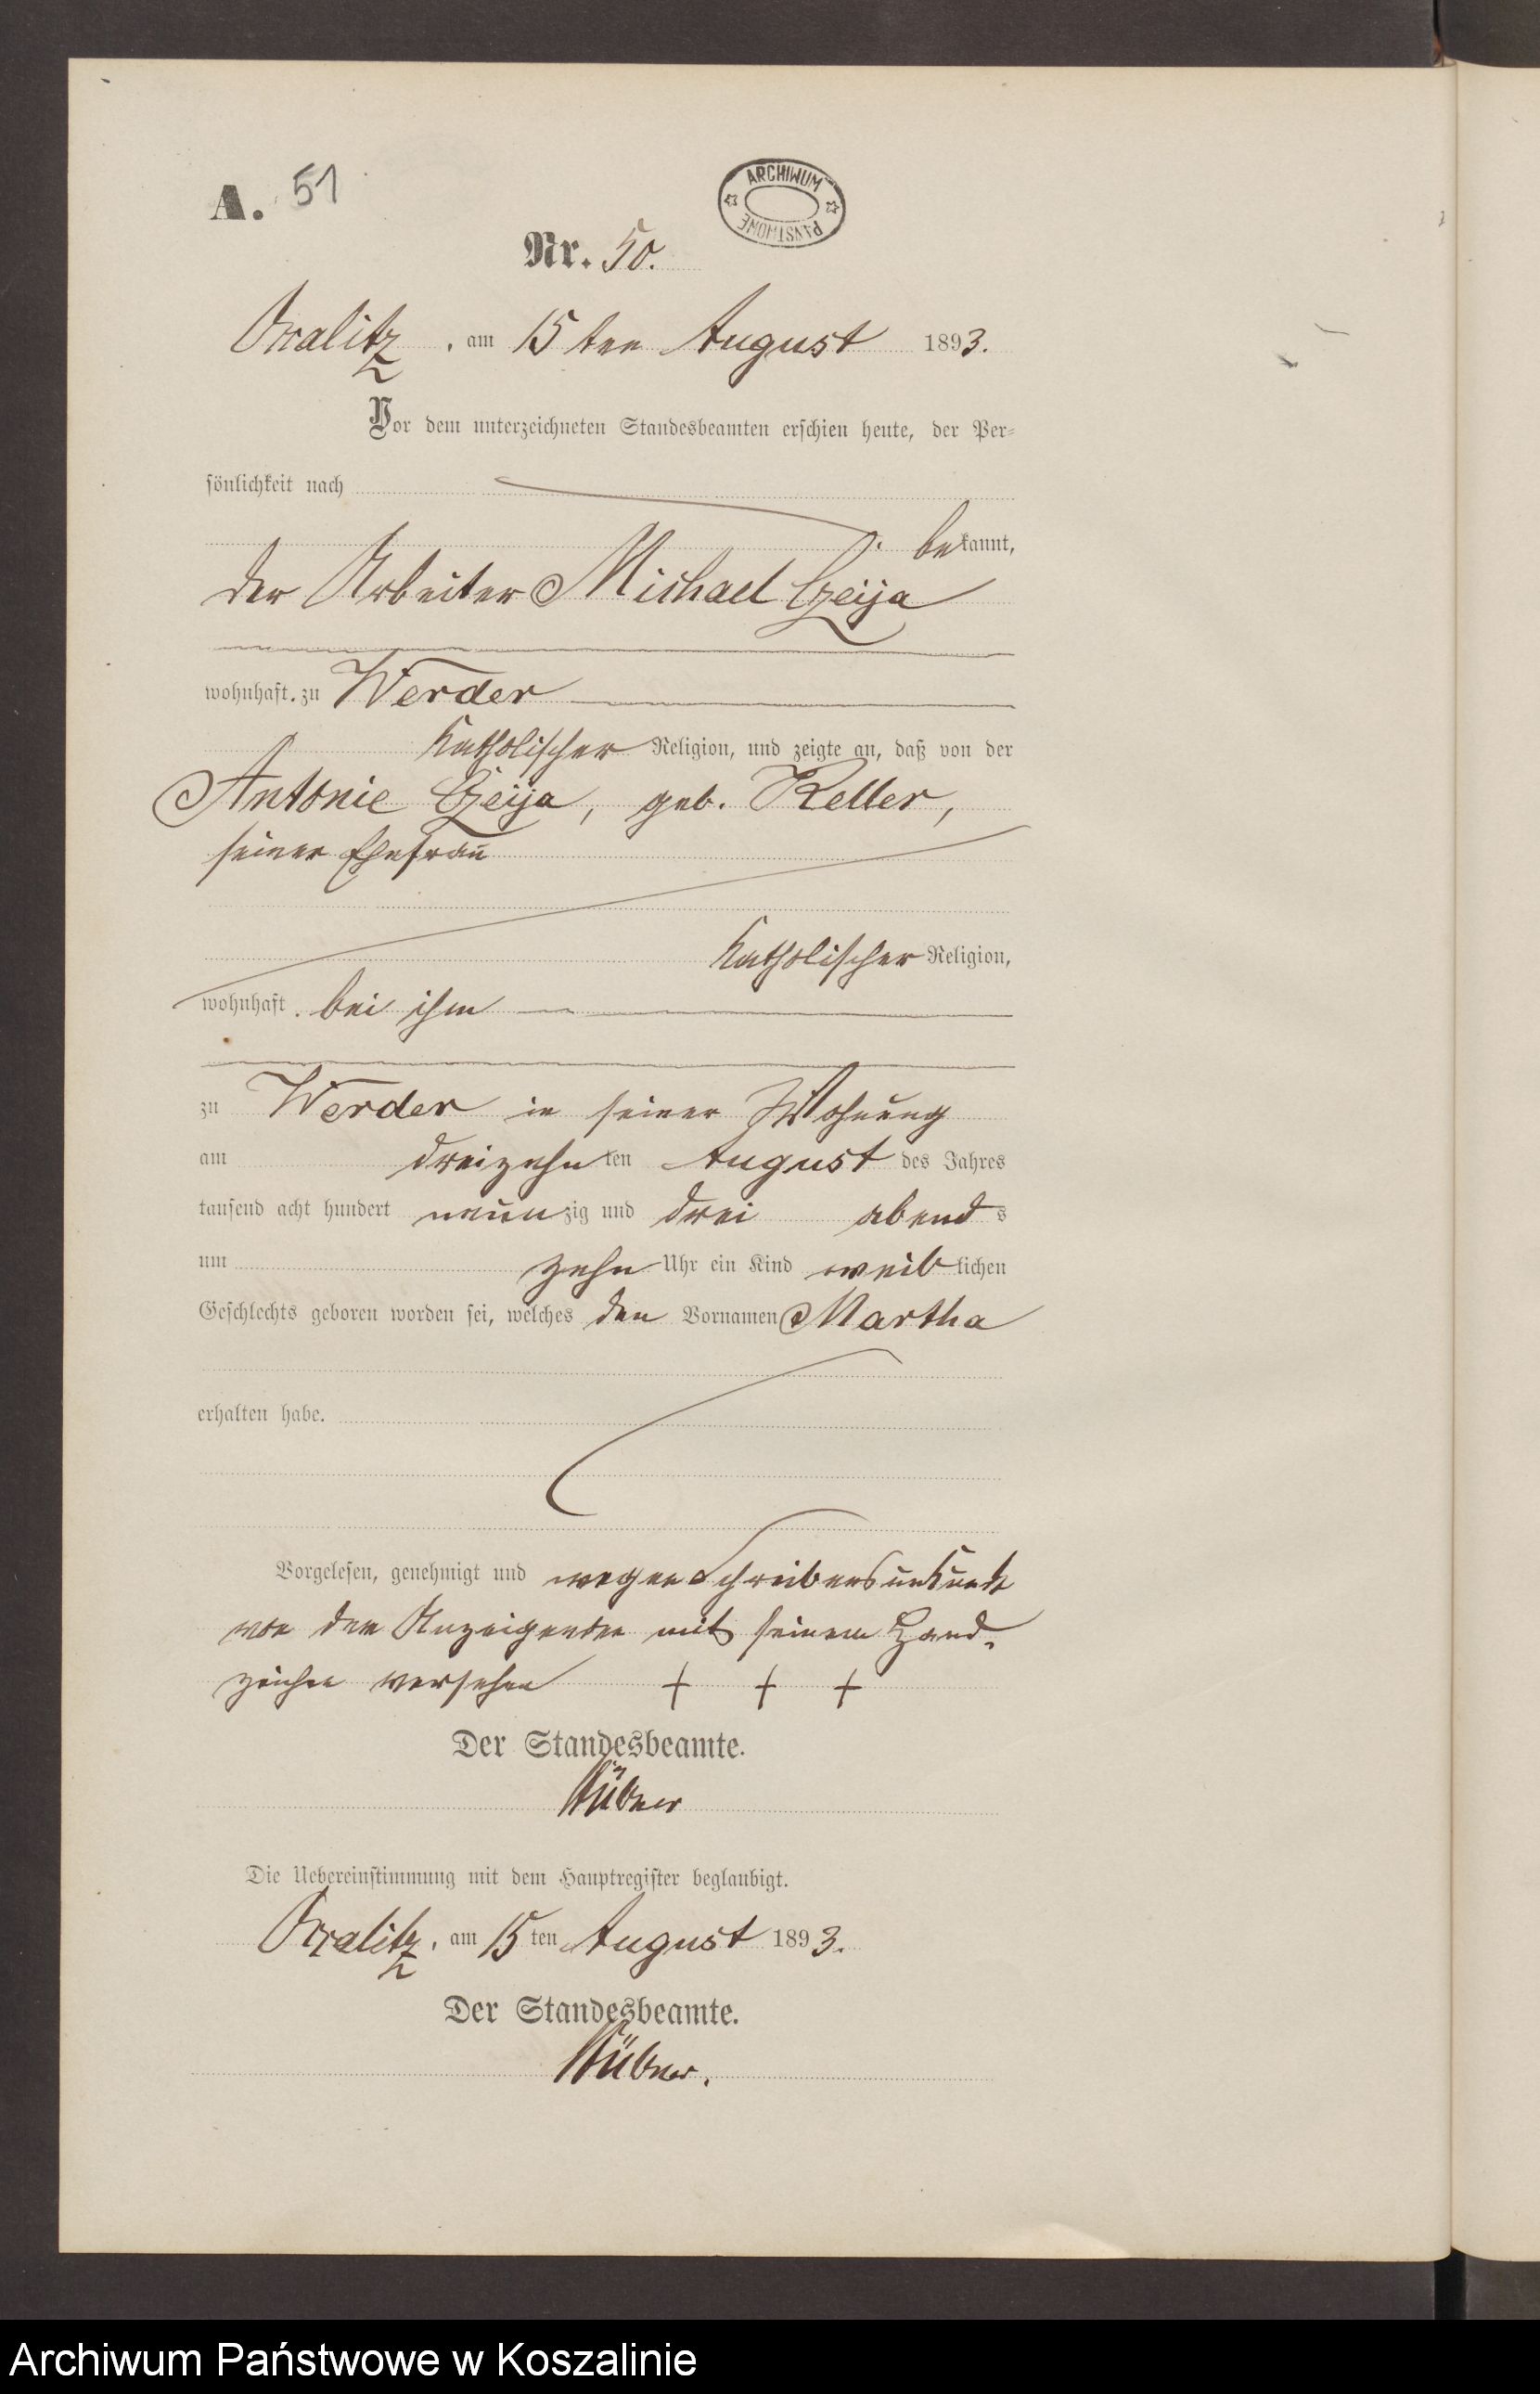 A. 51
ARCHIWUM
PAŃSTWOWE
Nr. 50.
am 15ten August 1893.
Vor dem unterzeichneten Standesbeamten erschien heute, der Per-
sönlichkeit nach
bekannt,
der Arbeiter Michael Czeija
wohnhaft zu Werder
katholischer Religion, und zeigte an, daß von der
Antonie Czeija, geb. Keller,
seiner Ehefrau
katholischer Religion,
wohnhaft bei ihm
zu Werder in seiner Wohnung
am dreizehnten August des Jahres
tausend acht hundert neunzig und drei abends
um zehn Uhr ein Kind weiblichen
Geschlechts geboren worden sei, welches den Vornamen Martha
erhalten habe.
Vorgelesen, genehmigt und wegen Schreibensunkunde
von dem Anzeigenden mit seinem Hand-
zeichen versehen + + +
Der Standesbeamte.
Hübner
Die Uebereinstimmung mit dem Hauptregister beglaubigt.
am 15ten August 1893.
Der Standesbeamte.
Hübner.
Archiwum Państwowe w Koszalinie